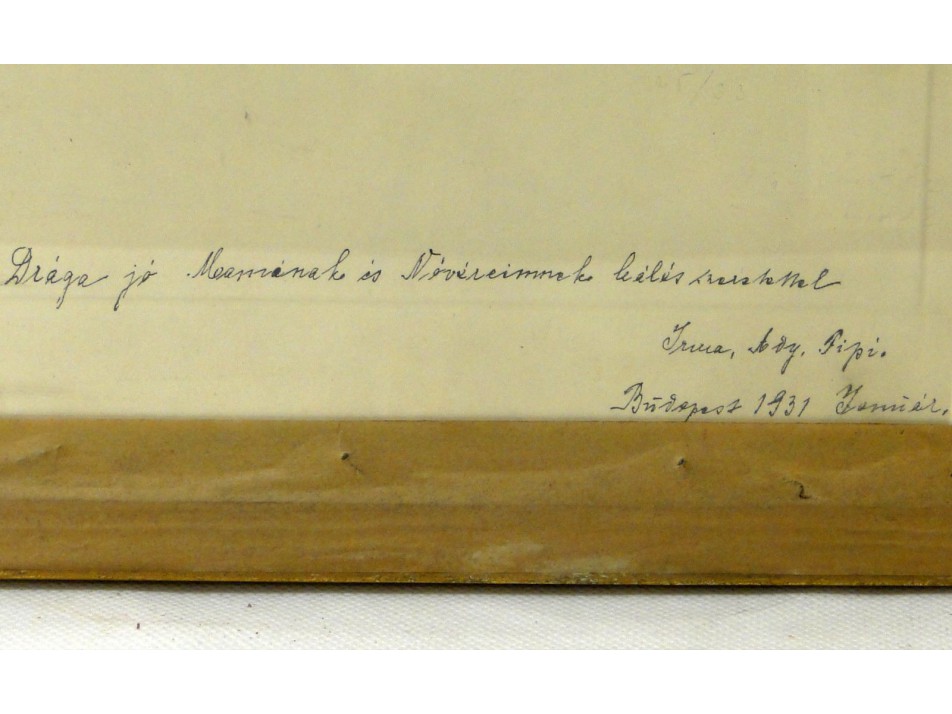 Drága jó Mamának és Nővéreimnek hálás szeretettel
Irma, Ady, Pipi.
Budapest 1931 Január.